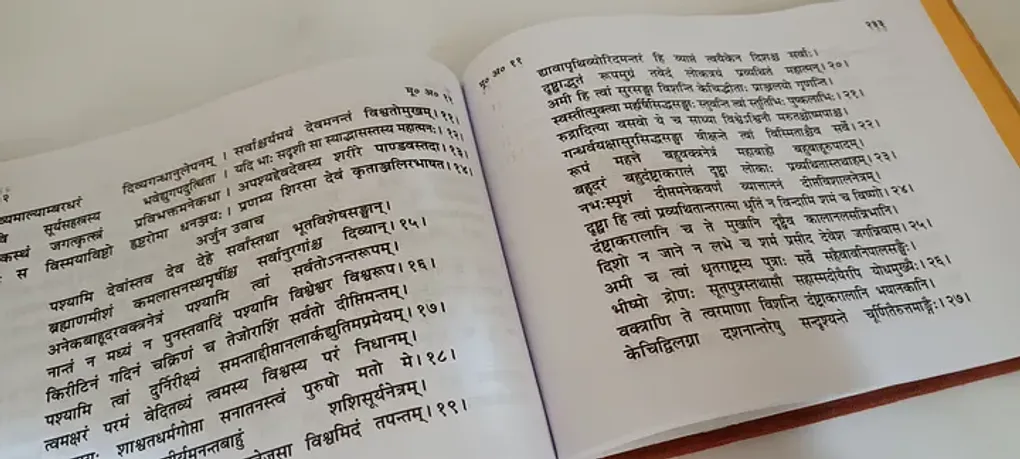 मू० अ० ११
दिव्यगन्धानुलेपनम् । सर्वाश्चर्यमयं देवमनन्तं विश्वतोमुखम् । ११ ।
सूर्यसहस्रस्य भवेद्युगपदुत्थिता । यदि भाः सदृशी सा स्याद्भासस्तस्य महात्मनः । १२ ।
जगत्कृत्स्नं प्रविभक्तमनेकधा । अपश्यद्देवदेवस्य शरीरे पाण्डवस्तदा । १३ ।
स विस्मयाविष्टो हृष्टरोमा धनञ्जयः । प्रणम्य शिरसा देवं कृताञ्जलिरभाषत । १४ ।
अर्जुन उवाच
पश्यामि देवांस्तव देव देहे सर्वांस्तथा भूतविशेषसङ्घान् ।
ब्रह्माणमीशं कमलासनस्थमृषींश्च सर्वानुरगांश्च दिव्यान् । १५ ।
अनेकबाहूदरवक्त्रनेत्रं पश्यामि त्वां सर्वतोऽनन्तरूपम् ।
नान्तं न मध्यं न पुनस्तवादिं पश्यामि विश्वेश्वर विश्वरूप । १६ ।
किरीटिनं गदिनं चक्रिणं च तेजोराशिं सर्वतो दीप्तिमन्तम् ।
पश्यामि त्वां दुर्निरीक्ष्यं समन्ताद्दीप्तानलार्कद्युतिमप्रमेयम् । १७ ।
त्वमक्षरं परमं वेदितव्यं त्वमस्य विश्वस्य परं निधानम् ।
शाश्वतधर्मगोप्ता सनातनस्त्वं पुरुषो मतो मे । १८ ।
शशिसूर्यनेत्रम् ।
विश्वमिदं तपन्तम् । १९ ।
मू० अ० ११
२३३
द्यावापृथिव्योरिदमन्तरं हि व्याप्तं त्वयैकेन दिशश्च सर्वाः ।
दृष्ट्वाद्भुतं रूपमुग्रं तवेदं लोकत्रयं प्रव्यथितं महात्मन् । २० ।
अमी हि त्वां सुरसङ्घा विशन्ति केचिद्भीताः प्राञ्जलयो गृणन्ति ।
स्वस्तीत्युक्त्वा महर्षिसिद्धसङ्घाः स्तुवन्ति त्वां स्तुतिभिः पुष्कलाभिः । २१ ।
रुद्रादित्या वसवो ये च साध्या विश्वेऽश्विनौ मरुतश्चोष्मपाश्च ।
गन्धर्वयक्षासुरसिद्धसङ्घा वीक्षन्ते त्वां विस्मिताश्चैव सर्वे । २२ ।
रूपं महत्ते बहुवक्त्रनेत्रं महाबाहो बहुबाहूरुपादम् ।
बहूदरं बहुदंष्ट्राकरालं दृष्ट्वा लोकाः प्रव्यथितास्तथाहम् । २३ ।
नभःस्पृशं दीप्तमनेकवर्णं व्यात्ताननं दीप्तविशालनेत्रम् ।
दृष्ट्वा हि त्वां प्रव्यथितान्तरात्मा धृतिं न विन्दामि शमं च विष्णो । २४ ।
दंष्ट्राकरालानि च ते मुखानि दृष्ट्वैव कालानलसन्निभानि ।
दिशो न जाने न लभे च शर्म प्रसीद देवेश जगन्निवास । २५ ।
अमी च त्वां धृतराष्ट्रस्य पुत्राः सर्वे सहैवावनिपालसङ्घैः ।
भीष्मो द्रोणः सूतपुत्रस्तथासौ सहास्मदीयैरपि योधमुख्यैः । २६ ।
वक्त्राणि ते त्वरमाणा विशन्ति दंष्ट्राकरालानि भयानकानि ।
केचिद्विलग्ना दशनान्तरेषु सन्दृश्यन्ते चूर्णितैरुत्तमाङ्गैः । २७ ।